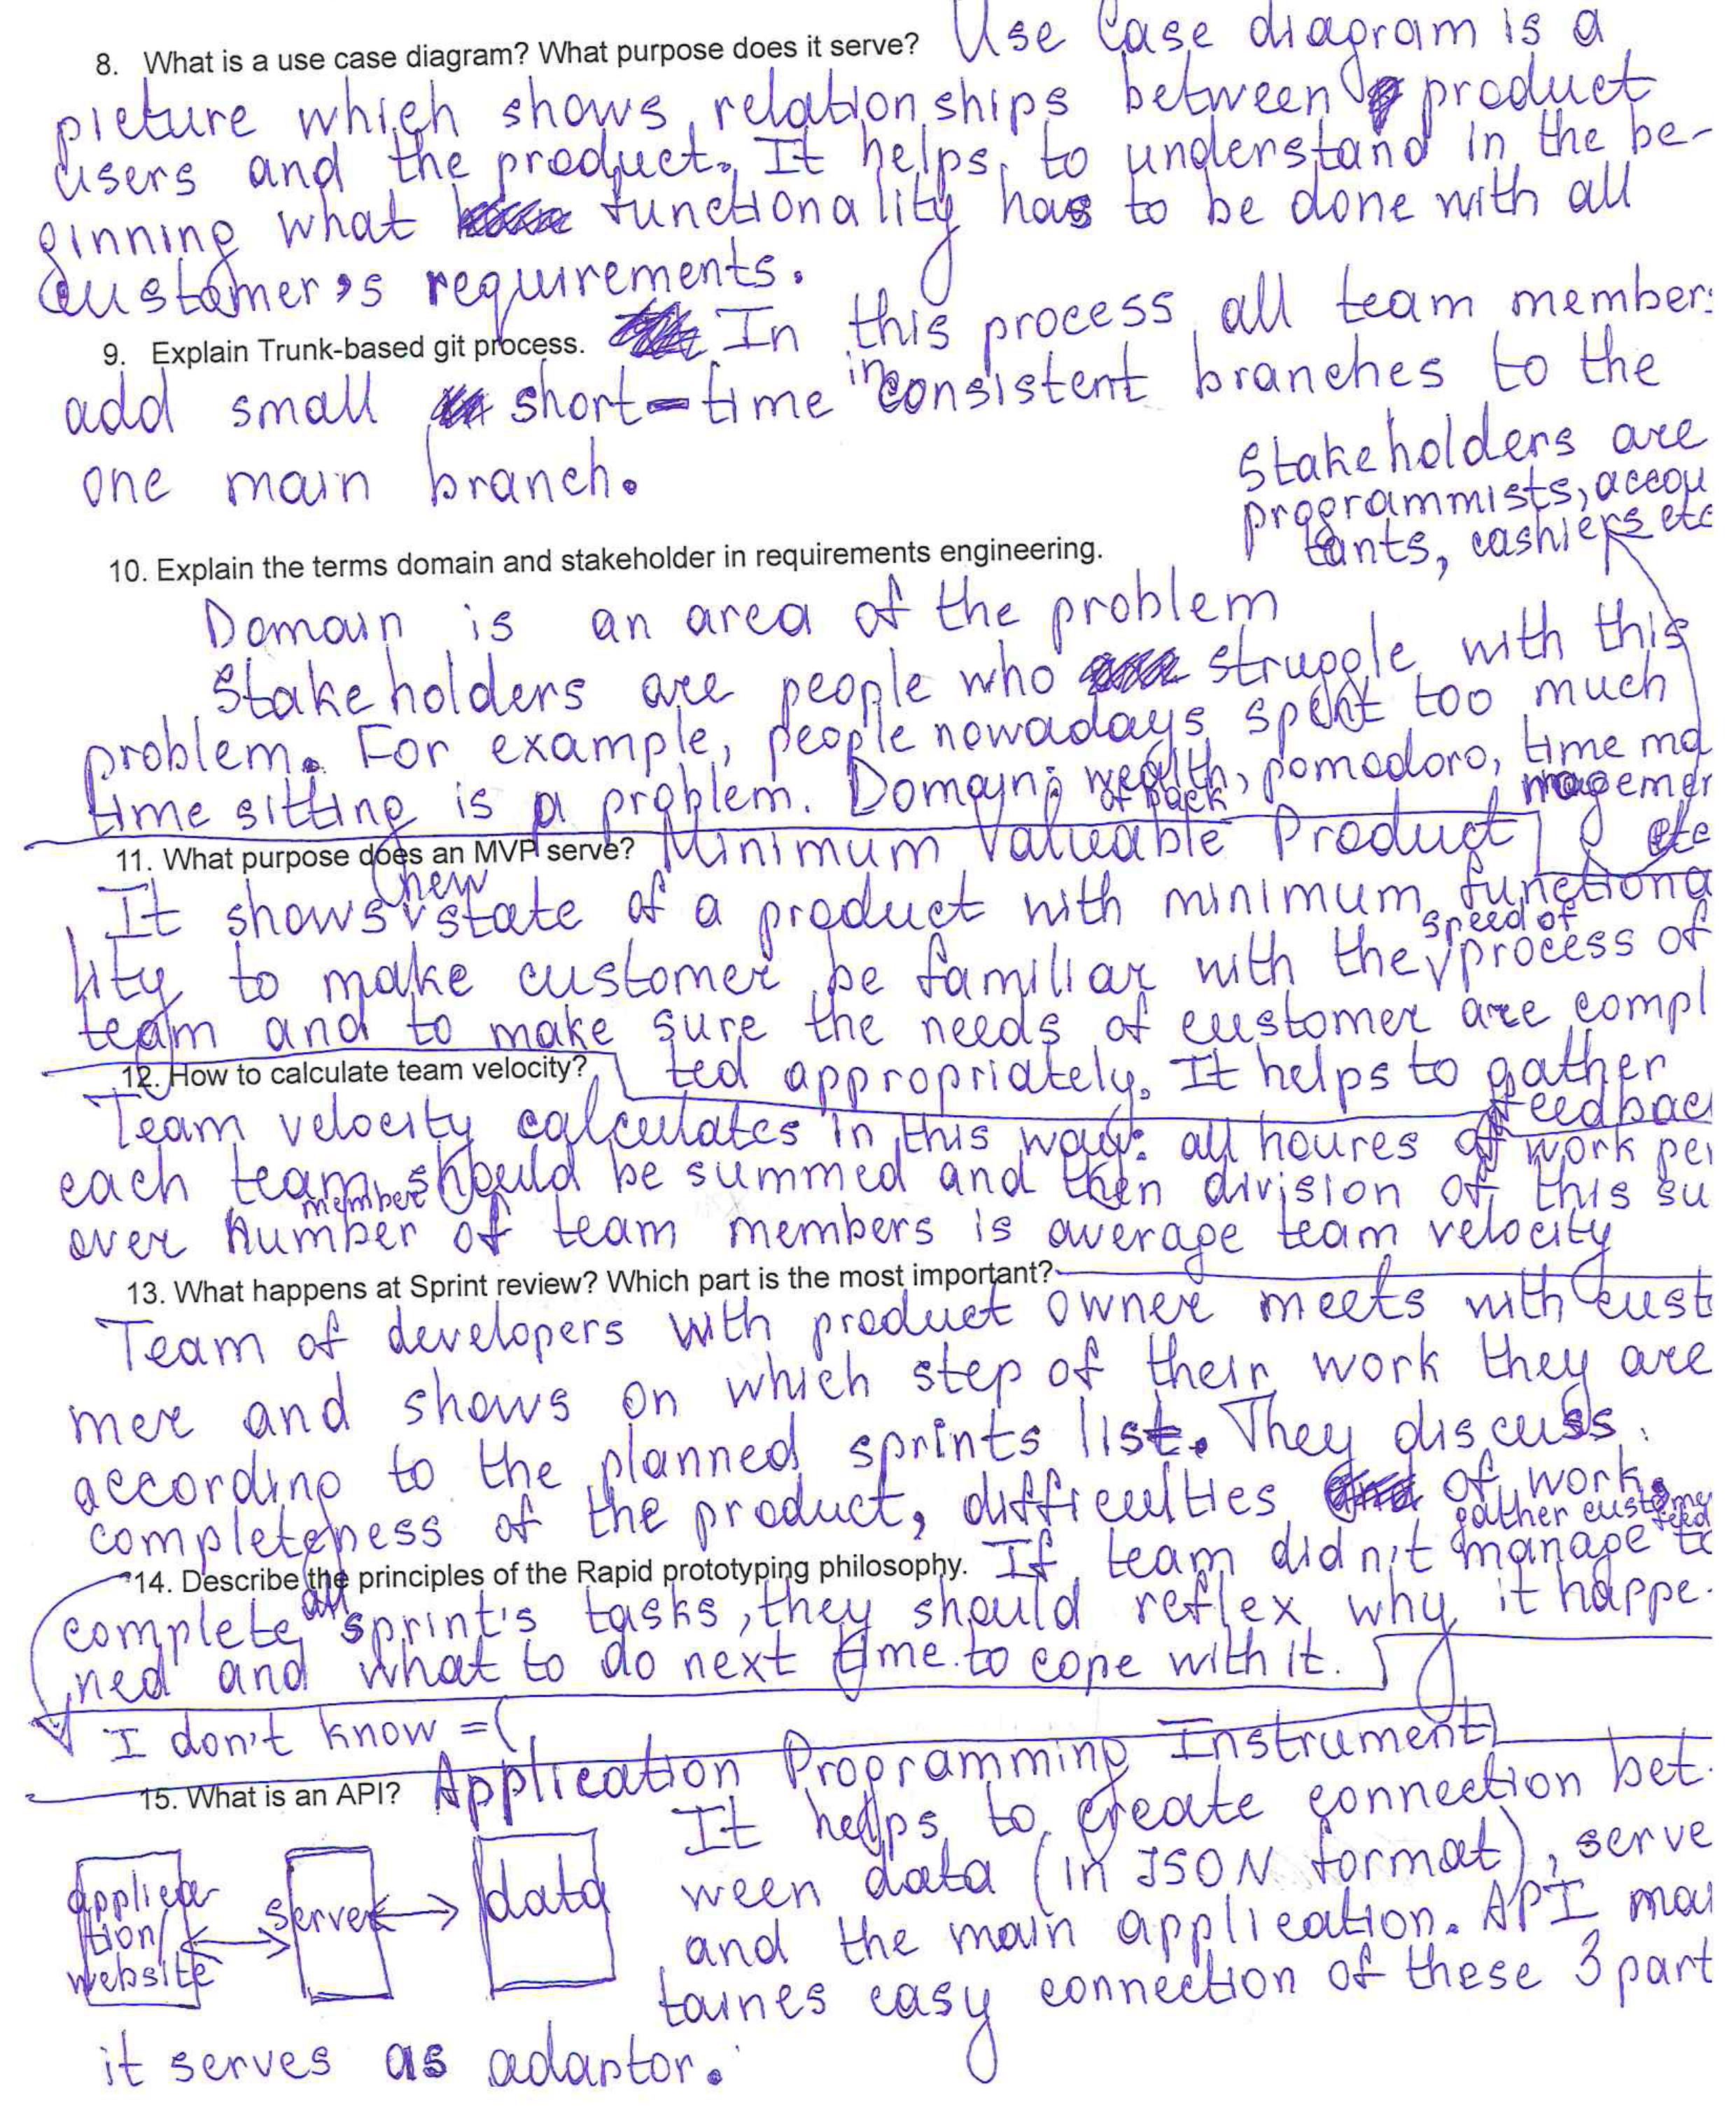 8. What is a use case diagram? What purpose does it serve? Use Case diagram is a
picture which shows relationships between product
users and the product. It helps to understand in the be-
ginning what functionality has to be done with all
customer's requirements.
9. Explain Trunk-based git process. In this process all team member
add small short-time inconsistent branches to the
one main branch.
Stakeholders are
programmists, accou
tants, cashiers etc
10. Explain the terms domain and stakeholder in requirements engineering.
Domain is an area of the problem
Stakeholders are people who struggle with this
problem. For example, people nowadays spent too much
time sitting is a problem. Domain: wealth of back, pomodoro, time ma
nagemen
etc
11. What purpose does an MVP serve? Minimum Valuable Product
It shows new state of a product with minimum functiona
lity to make customer be familiar with the speed of process of
team and to make sure the needs of customer are compl
ted appropriately. It helps to gather
feedbac
12. How to calculate team velocity?
Team velocity calculates in this way: all houres of work per
each team member should be summed and then division of this su
over number of team members is average team velocity
13. What happens at Sprint review? Which part is the most important?
Team of developers with product owner meets with cust
mer and shows on which step of their work they are
according to the planned sprints list. They discuss
completeness of the product, difficulties of work,
gather custome
feed
14. Describe the principles of the Rapid prototyping philosophy. If team didn't manage to
complete all sprint's tasks, they should reflex why it happe-
ned and what to do next time to cope with it.
I don't know =(
15. What is an API? Application Programming Instrument
It helps to create connection bet-
ween data (in JSON format), serve
and the main application. API mai
taines easy connection of these 3 part
it serves as adaptor.
applica-
tion/
website
server
data